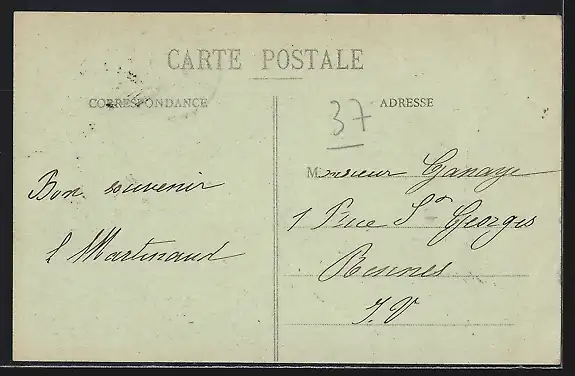 CARTE POSTALE
CORRESPONDANCE
ADRESSE
37
Bon souvenir
L Martinaud
Monsieur Ganaye
1 Rue St Georges
Rennes
I.V